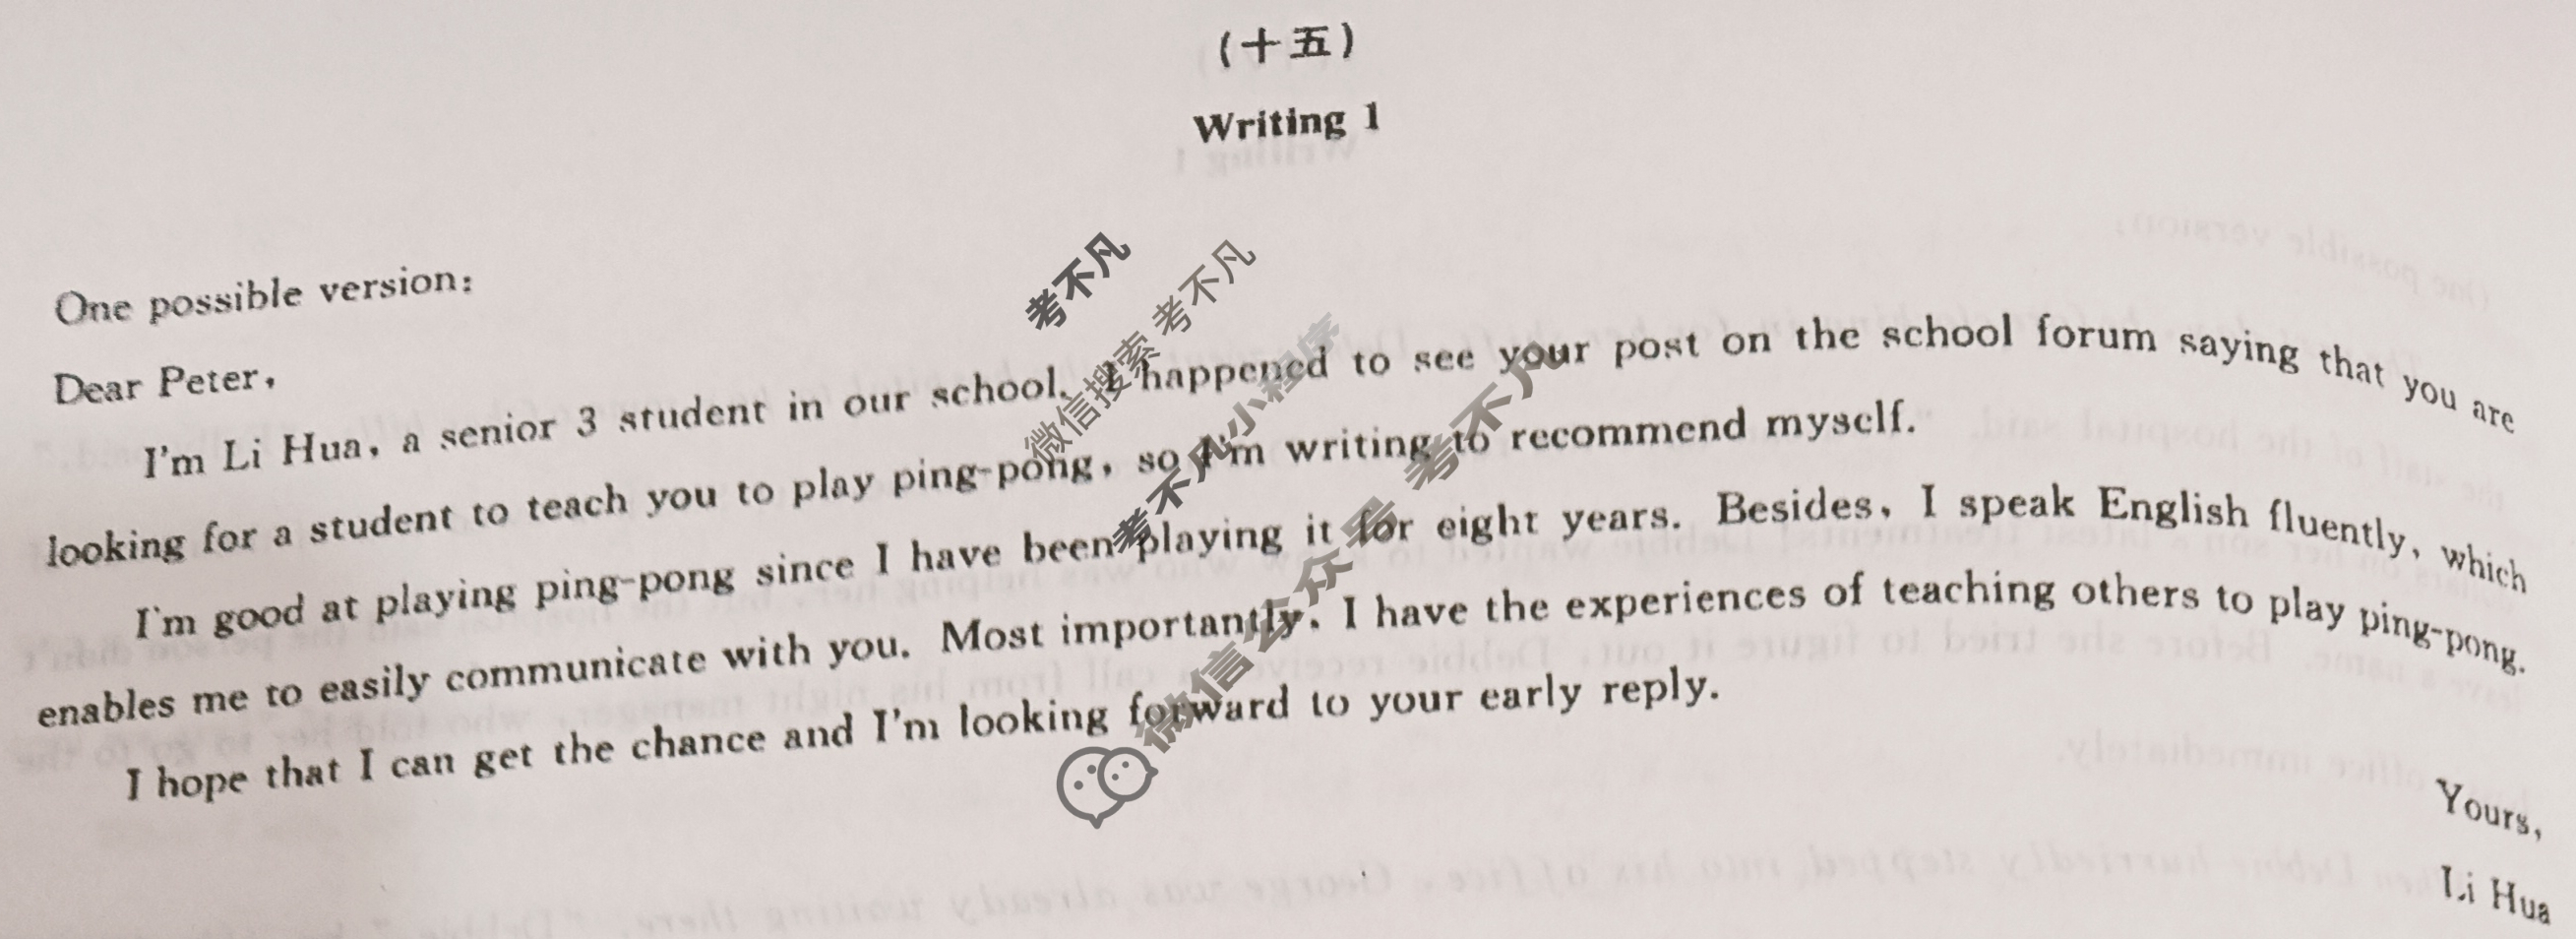 (十五)
Writing 1
One possible version:
Dear Peter,
I'm Li Hua, a senior 3 student in our school. I happened to see your post on the school forum saying that you are
looking for a student to teach you to play ping-pong, so I'm writing to recommend myself.
I'm good at playing ping-pong since I have been playing it for eight years. Besides, I speak English fluently, which
enables me to easily communicate with you. Most importantly, I have the experiences of teaching others to play ping-pong.
I hope that I can get the chance and I'm looking forward to your early reply.
Yours,
Li Hua
考不凡
微信搜索 考不凡
考不凡小程序
微信公众号 考不凡